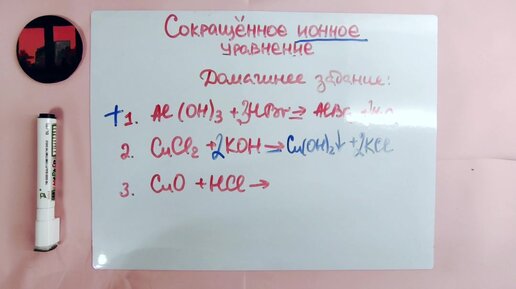 Сокращённое ионное
уравнение
Домашнее задание:
+1. Al(OH)₃ + 3HBr ⇒
2. CuCl₂ + 2KOH → Cu(OH)₂↓ + 2KCl
3. CuO + HCl →